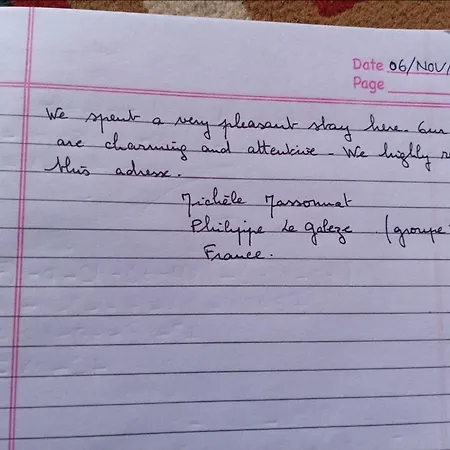 Date 06/NOV/
Page
We spent a very pleasant stay here. Our
are charming and attentive - We highly
this adresse.
Michèle Massonnat
Philippe Le Galeze (groupe
France.